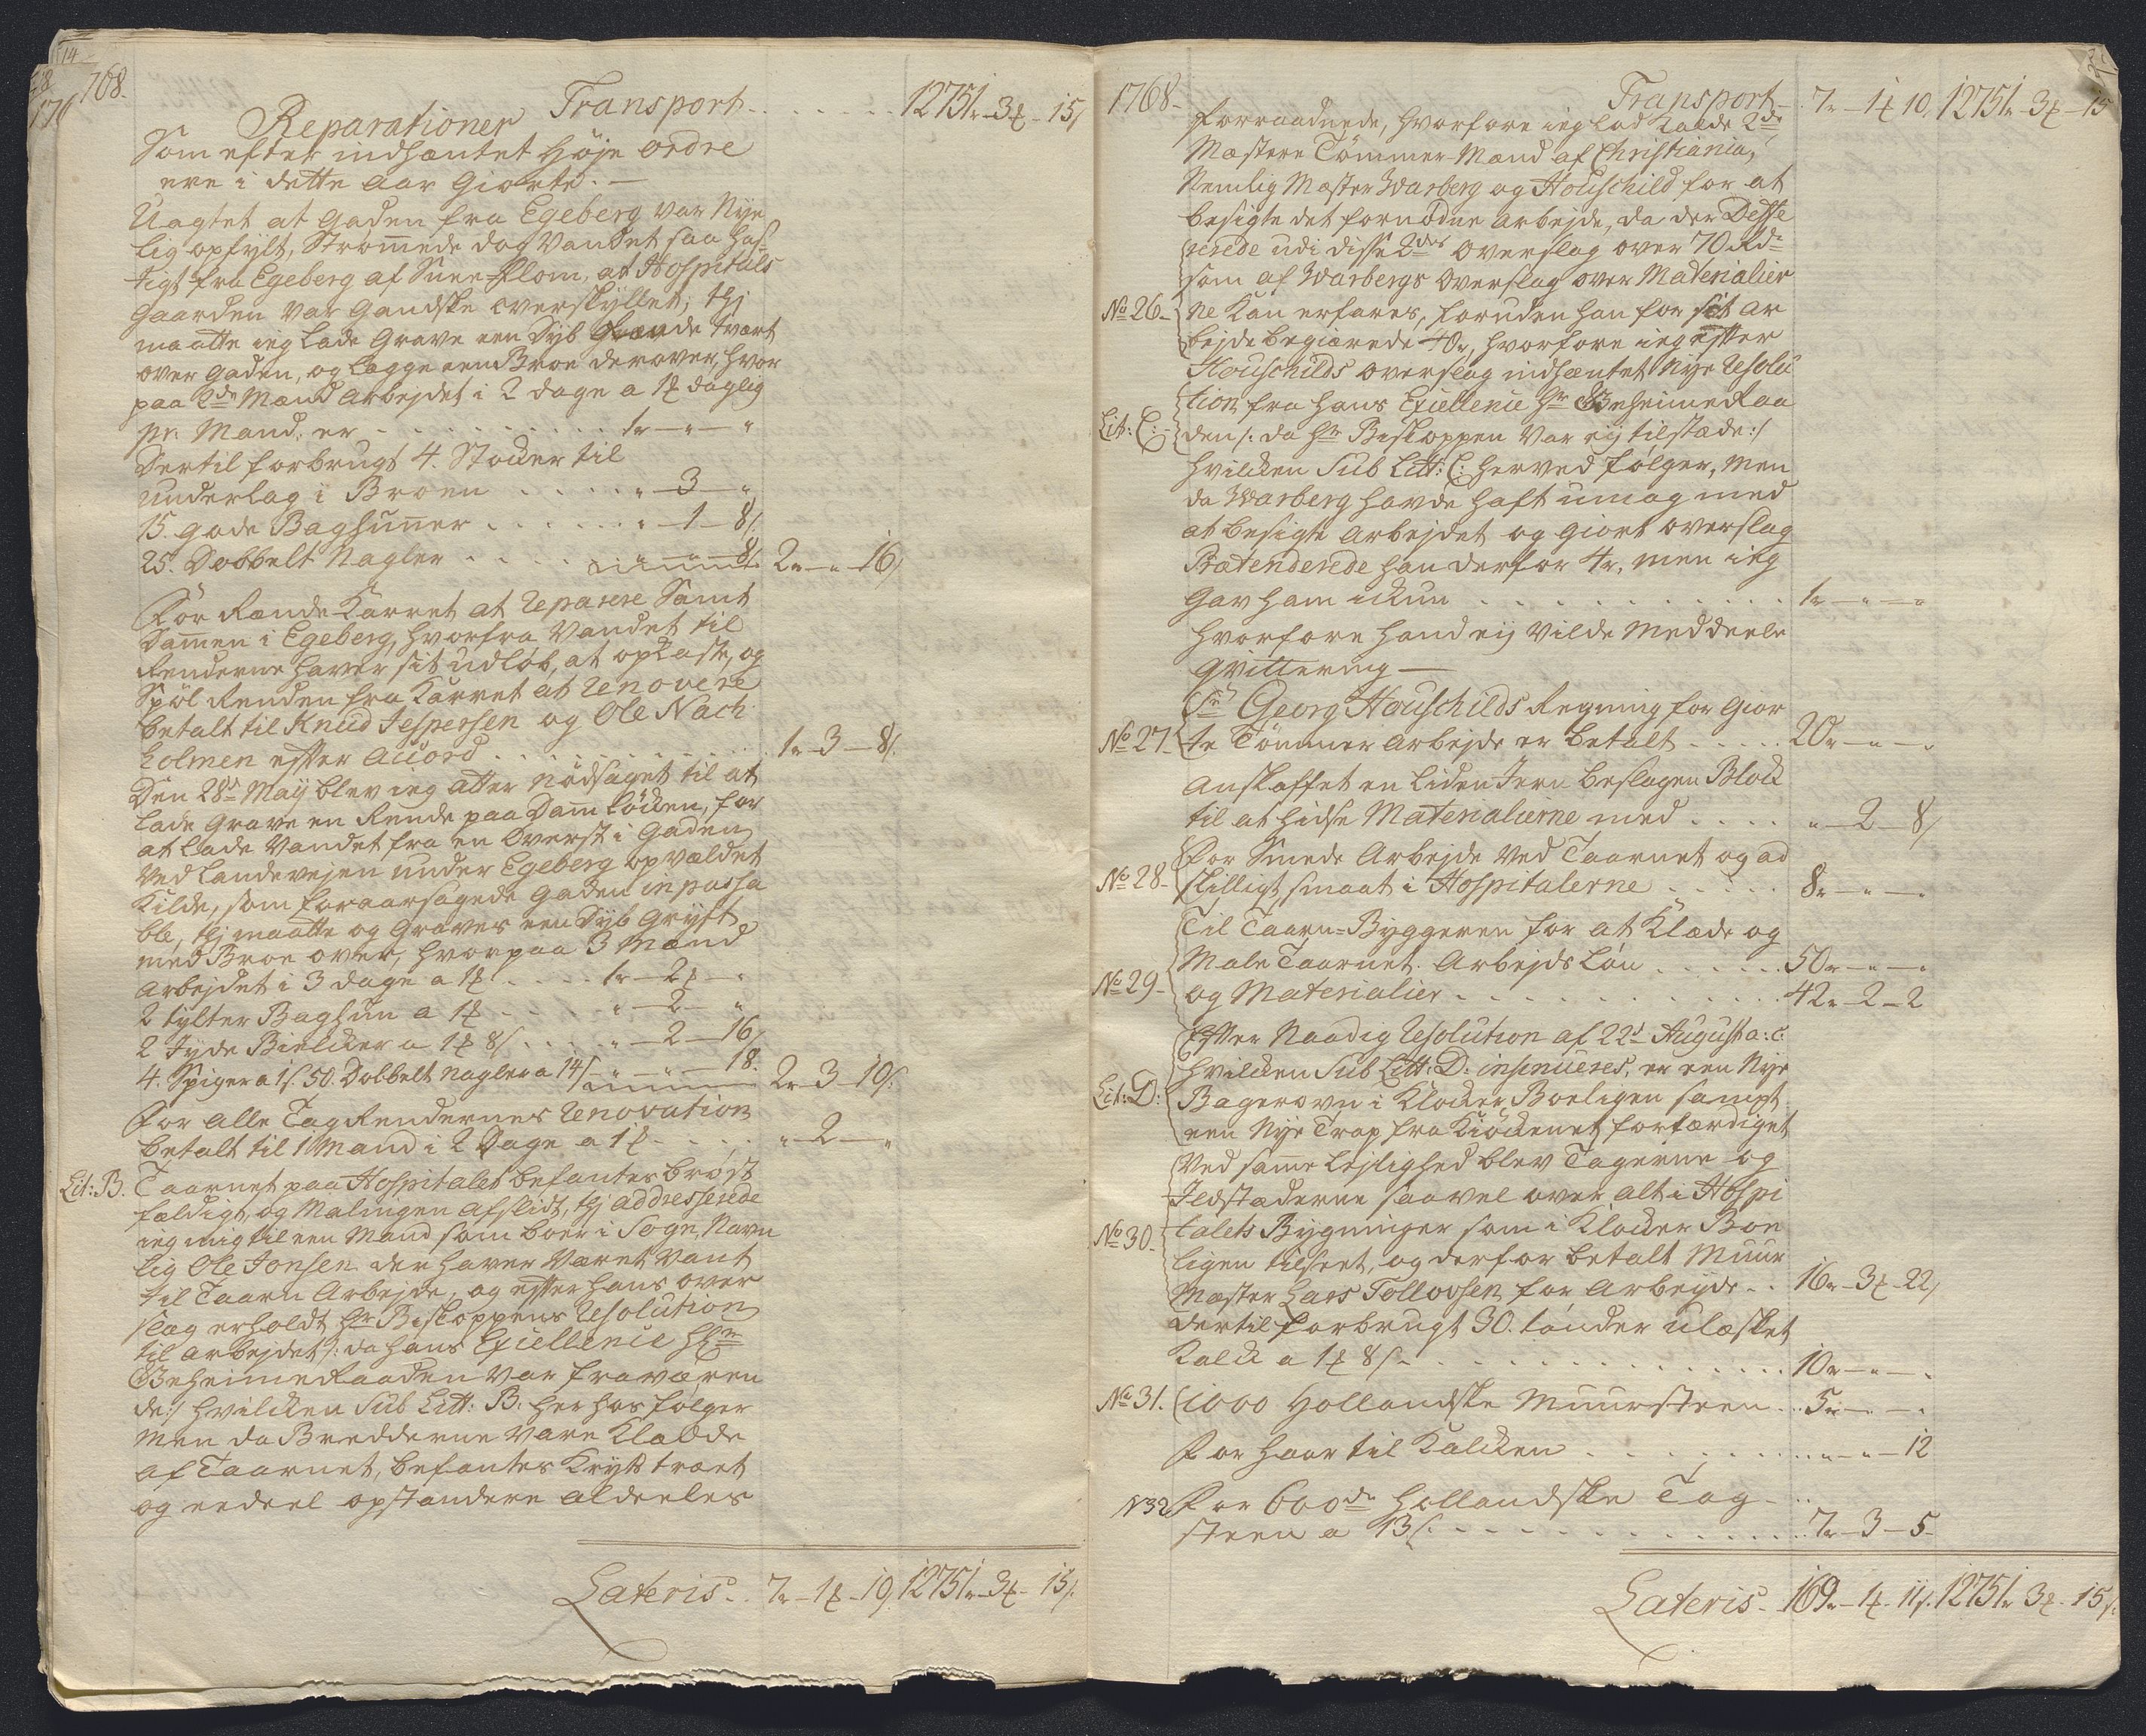 14
1768.
Transport - - - - 12751r - 3ʒ - 15ß
Reparationer
Som efter indhæntet Høje ordre
ere i dette Aar Giorte. —
Uagtet at Gaden fra Egeberg var Nye
lig opfylt, Strømmede dog Vandet saa has-
tigt fra Egeberg af Snee-flom, at Hospitals
Gaarden var Gandske overskyllet; thj
maatte ieg lade Grave een dyb Grænde tvært
over Gaden, og lægge een Broe derover, hvor
paa 2de Mænd Arbejdet i 2 dage a 1ʒ daglig
pr. Mand, er - - - - 1r - " - "
Dertil forbrugt 4. Stocker til
underlag i Broen - - - - " - 3 - "
15. gode Baghunner - - - - " - 1 - 8ß
25. Dobbelt Nagler - - - - " - " - 8ß 2r - " - 16ß
For Rænde Karret at reparere Samt
Dammen i Egeberg, hvorfra Vandet til
Renderne haver sit udløb, at opkaste, og
Spøl Renden fra Karret at renovere
betalt til Knud Jespersen og Ole Nach
holmen efter Accord - - - - 1r - 3 - 8ß
Den 28de Maij blev ieg atter nødsaget til at
lade Grave en Rende paa Dam løcken, for
at lade Vandet fra en Øverst i Gaden
ved Landevejen under Egeberg opvældet
Kilde, som foraarsagede Gaden inpassa
ble, thj maatte og Graves een dyb Grøft
med Broe over, hvorpaa 3 Mænd
Arbejdet i 3 dage a 1ʒ - - - - 1r - 2ʒ - "
2 tylter Baghun a 1ʒ - - - - " - 2 - "
2 Tyde Bielcker a 1ʒ 8ß - - - - " - 2 - 16ß
4. Spiger a 1ß. 50. Dobbelt nagler a 14ß " - " - 18. 2r - 3 - 10ß
for alle Tag Rendernes renovation
betalt til 1 Mand i 2 Dage a 1ʒ - - - - " - 2 - "
Lit: B. Taarnet paa Hospitalet befantes brøst
fældigt, og Malingen afslidt, thj addresserede
ieg mig til een Mand som boer i Sogn, Navn
lig Ole Jonsen der haver været vant
til Taarn Arbejde, og efter hans over
slag erholdt Hr Biskoppens resolution
til Arbejdet /: da hans Excellence Hr
Geheimeraaden var fraværen
de:/ hvilcken Sub Litt: B. her hos følger
Men da Bredderne vare Klædde
af Taarnet, befantes Kryds træet
og eendeel opstandere aldeeles
Lateris - 7r - 1ʒ - 10ß 12751r - 3ʒ - 15ß.
1768-
Transport - 7r - 1ʒ 10. 12751r - 3ʒ - 15
forraadnede, hvorfore ieg lod Kalde 2de
Mæstere Tømmer-Mænd af Christiania,
Nemlig Mæster Warberg og Houschild for at
besigte det fornødne Arbejde, da der Diffe
rerede udi disse 2des Overslag over 70 Rdr
som af Warbergs Overslag over Materialier
No 26 - ne Kan erfares, foruden han for sit Ar
bejde begiærede 40r, hvorfore ieg efter
Houschilds Overslag indhæntet Nye resolu
tion fra hans Excellence Hr Geheimeraa
Lit: C: - den /: da Hr Biskoppen var ej tilstæde:/
hvilcken Sub Litt: C: herved følger, Men
da Warberg havde haft umag med
at besigte Arbejdet og giort Overslag
Prætenderede han derfor 4r, men ieg
Gav ham ickun - - - - 1r - " - "
hvorfore hand ej vilde Meddeele
Qvittering —
Sr Georg Houschilds Regning for Gior
No 27 - te Tømmer Arbejde er betalt - - - - 20r - " - "
Anskaffet en liden Jern beslagen Block
til at hidse Materialierne med - - - - " - 2 - 8ß
For Smede Arbejde ved Taarnet og ad
No 28 - skilligt smaat i Hospitalerne - - - - 8r - " - "
Til Taarn-Byggeren for at Klæde og
Male Taarnet. Arbejds Løn - - - - 50r - " - "
No 29 - og Materialier - - - - 42r - 2 - 2
Efter Naadig resolution af 22d Augusti a: c:
hvilcken Sub Litt: D: insinueres, er een Nye
Lit: D: Bagerovn i Klocker Boeligen samt
een Nye Trap fra Kiøckenet forfærdiget
Ved samme Lejlighed blev Tagerne og
Ildstæderne saavel over alt i Hospi
No 30 - talets Bygninger som i Klocker Boe
ligen tilseet, og derfor betalt Muur
Mæster Lars Tollovsen for Arbejde - - 16r - 3ʒ - 22ß
dertil forbrugt 30. tønder ulæsket
Kalck a 1ʒ 8ß - - - - 10r - " - "
No 31. 1000 Hollandske Muursteen - - 5r - " - "
For haar til Kalcken - - - - " - " - 12
N 32 For 600de hollandske Tag-
steen a 13ß. - - - - 7r - 3 - 5
Lateris - 169r - 1ʒ - 11ß. 12751r 3ʒ - 15ß.